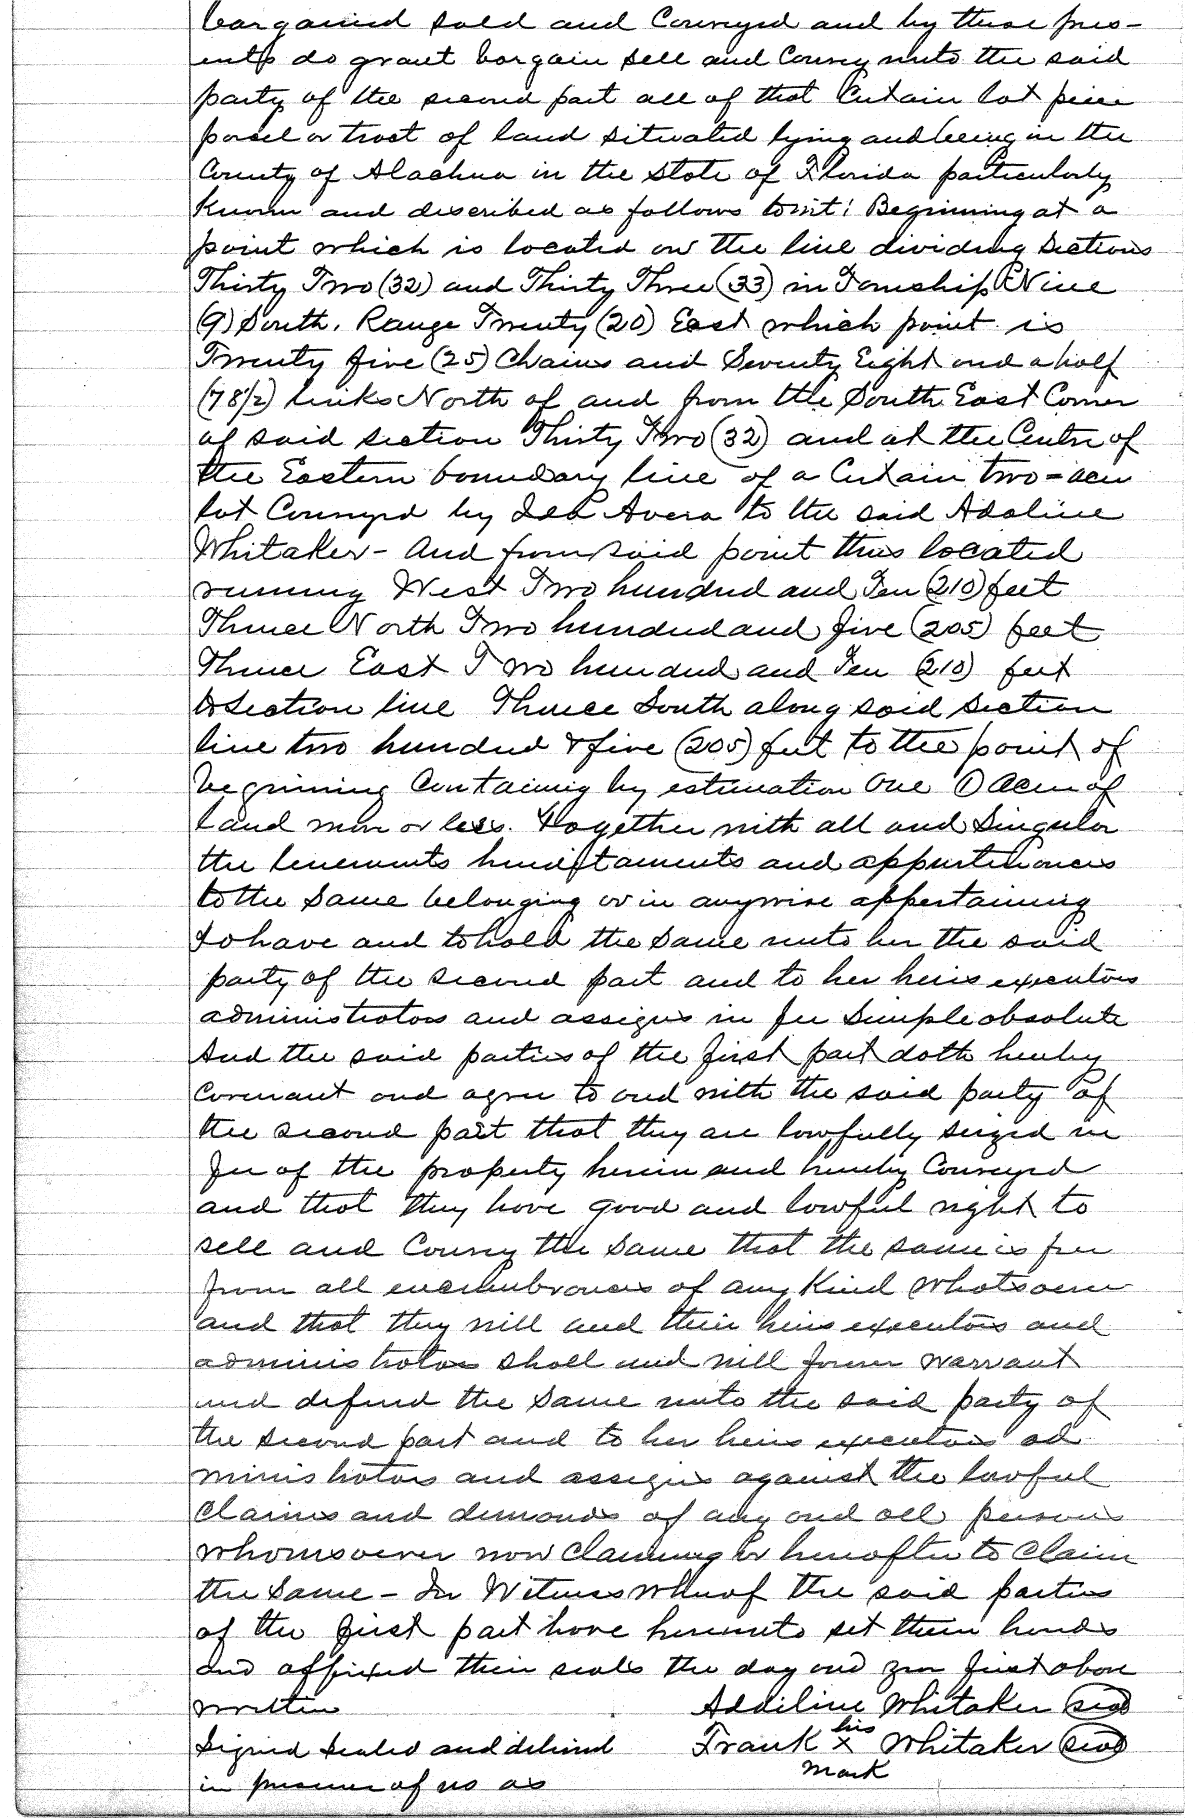 bargained sold and Conveyed and by these pres-
ents do grant bargain sell and Convey unto the said
party of the second part all of that Certain lot piece
parsel or tract of land situated lying and being in the
County of Alachua in the State of Florida particularly
Known and described as follows towit: Beginning at a
point which is located on the line dividing Sections
Thirty Two (32) and Thirty Three (33) in Township Nine
(9) South, Range Twenty (20) East which point is
Twenty five (25) Chains and Seventy Eight and a half
(78 1/2) links North of and from the South East Corner
of said section Thirty Two (32) and at the Centre of
the Eastern boundary line of a Certain two=acre
lot Conveyed by Avera to the said Adaline
Whitaker - And from said point thus located
running West Two hundred and Ten (210) feet
Thence North Two hundred and five (205) feet
Thence East Two hundred and Ten (210) feet
to Section line Thence South along said section
line two hundred & five (205) feet to the point of
beginning Containing by estimation One (1) Acre of
Land more or less. Together with all and Singular
the tenements hereditaments and appurtenances
to the Same belonging or in anywise appertaining
To have and to hold the Same unto her the said
party of the second part and to her heirs executors
administrators and assigns in fee Simple absolute
And the said parties of the first part doth hereby
Covenant and agree to and with the said party of
the second part that they are lawfully seized in
fee of the property herein and hereby Conveyed
and that they have good and lawful right to
sell and Convey the Same that the same is free
from all encumbrances of any Kind whatsoever
and that they will and their heirs executors and
administrators shall and will forever warrant
and defend the Same unto the said party of
the second part and to her heirs executors ad
ministrators and assigns against the lawful
Claims and demands of any and all persons
whomsoever now Claiming or hereafter to Claim
the Same - In Witness Whereof the said parties
of the first part have hereunto set their hands
and affixed their seals the day and year first above
written Addiline Whitaker seal
Signed Sealed and delivered Frank his x mark Whitaker seal
in presence of us as